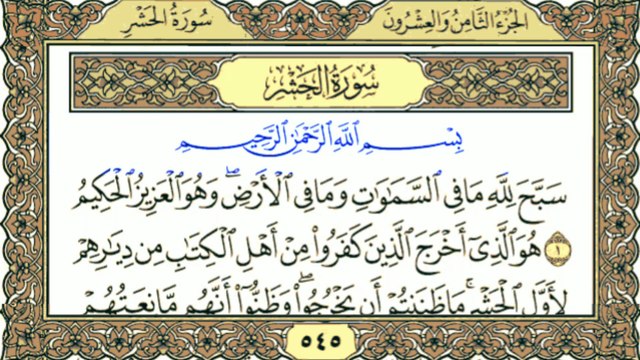 سُورَةُ الحَشْرِ
الجُزْءُ الثَّامِنُ وَالعِشْرُونَ
سُورَةُ الحَشْرِ
بِسْمِ ٱللَّهِ ٱلرَّحْمَٰنِ ٱلرَّحِيمِ
سَبَّحَ لِلَّهِ مَا فِي ٱلسَّمَٰوَٰتِ وَمَا فِي ٱلْأَرْضِۖ وَهُوَ ٱلْعَزِيزُ ٱلْحَكِيمُ
١ هُوَ ٱلَّذِيٓ أَخْرَجَ ٱلَّذِينَ كَفَرُوا۟ مِنْ أَهْلِ ٱلْكِتَٰبِ مِن دِيَٰرِهِمْ
لِأَوَّلِ ٱلْحَشْرِۚ مَا ظَنَنتُمْ أَن يَخْرُجُوا۟ۖ وَظَنُّوٓا۟ أَنَّهُم مَّانِعَتُهُمْ
٥٤٥